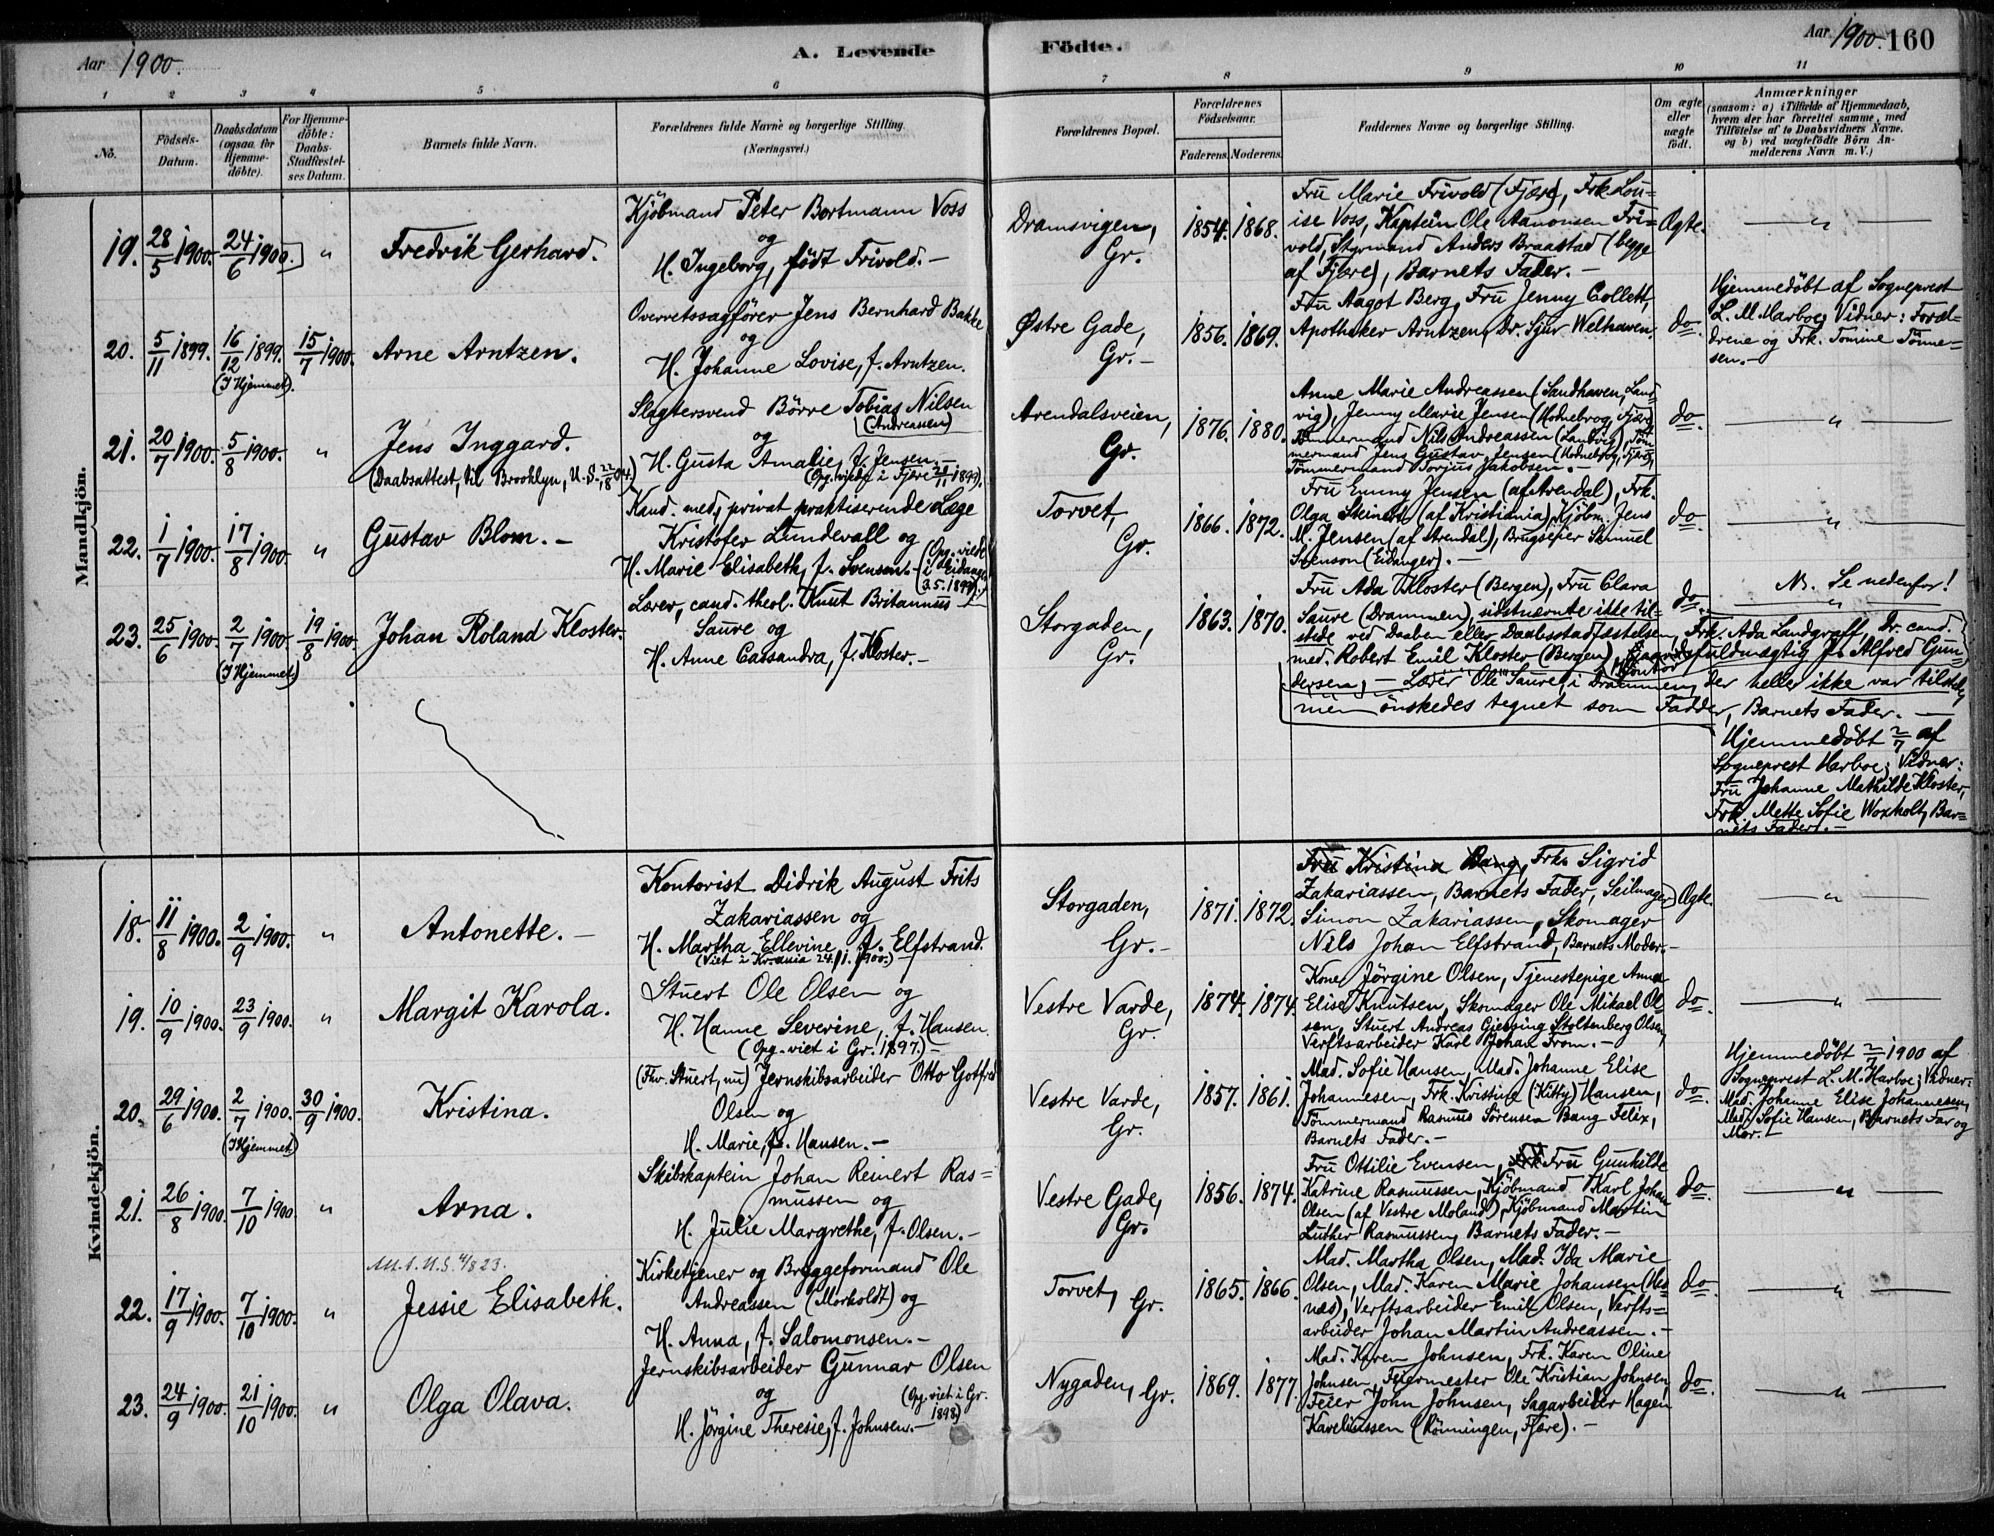 Aar 1900.
A. Levende
Födte.
Aar 1900. 160
1 2 3 4 5 6 7 8 9 10 11
Nô.
Födsels-Datum.
Daabsdatum (ogsaa for Hjemmedöbte).
For Hjemmedöbte: Daabs-Stadfæstelses Datum.
Barnets fulde Navn.
Forældrenes fulde Navne og borgerlige Stilling.
(Næringsvei.)
Forældrenes Bopæl.
Forældrenes Födselsaar.
Faderens. Moderens.
Faddernes Navne og borgerlige Stilling.
Om ægte eller uægte födt.
Anmærkninger
(saasom: a) i Tilfælde af Hjemmedaab, hvem der har forrettet samme, med Tilföielse af to Daabsvidners Navne. og b) ved uægtefödte Börn Anmelderens Navn m. V.)
Mandkjön.
19. 28/5 1900. 24/6 1900. "
Fredrik Gerhard.
Kjöbmand Peter Bortmann Voss
og
H. Ingeborg, födt Frivold.-
Dramsvigen,
Gr.
1854. 1868.
Fru Marie Frivold (Fjære), Frk. Lou-
ise Voss, Kaptein Ole Aanonsen Fri-
vold, Styrmand Anders Braastad (begge
af Fjære), Barnets Fader.-
Ægte.
"
20. 5/11 1899. 16/12 1899. (I Hjemmet). 15/7 1900.
Arne Arntzen.
Overretssagförer Jens Bernhard Bakke
og
H. Johanne Lovise, f. Arntzen.
Østre Gade,
Gr.-
1856. 1869.
Fru Aagot Berg, Fru Jenny Collett,
Apotheker Arntzen, Dr. Sjur Welhaven.
do.
Hjemmedöbt af Sogneprest
L. M. Harboe; Vidner: Foræl-
drene og Frk. Tomine Tönne-
sen.-
21. 20/7 1900. 5/8 1900. "
Jens Inggard.
(Daabsattest, til Brooklyn, U.S. 22/8 04.)
Slagtersvend Börre Tobias Nilsen
(Andreassen)
og
H. Gusta Amalie, f. Jensen.-
Arendalsveien,
Gr.
1876. 1880.
Anne Marie Andreassen (Sandhaven, Land-
vig), Jenny Marie Jensen (Hodnebrog, Fjære),
Tömmermand Nils Andreassen (Landvig), Töm-
mermand Jens Gustav Jensen (Hodnebrog, Fjære),
Tömmermand Torjus Jakobsen.-
do.
"
22. 1/7 1900. 17/8 1900. "
Gustav Blom.-
Kand. med., privat praktiserende Læge
Kristofer Lundevall og
H. Marie Elisabeth, f. Svensen.- (Opg. viede i Eidanger 3.5.1899.)
Torvet,
Gr.
1866. 1872.
Fru Emmy Jensen (af Arendal), Frk.
Olga Steinert (af Kristiania), Kjöbm. Jens
M. Jensen (af Arendal), Brugseier Samuel
Svenson (Eidanger).-
do.
"
23. 25/6 1900. 2/7 1900. (I Hjemmet) 19/8 1900.
Johan Roland Kloster.
Lærer, cand. theol. Knut Britannus
Saure og
H. Anne Cassandra, f. Kloster.-
Storgaden,
Gr.
1863. 1870.
Fru Ada Kloster (Bergen), Fru Clara
Saure (Drammen), sidstnævnte ikke til-
stede ved Daaben eller Daabsstadfæstelsen, Frk. Ada Landgraff, Dr. cand.
med. Robert Emil Kloster (Bergen), fuldmægtig Alfred Gun-
dersen,- Lærer Ole Saure, i Drammen, der heller ikke var tilstede,
men önskedes tegnet som Fadder, Barnets Fader.-
do.
N. Se nedenfor!
"
Hjemmedöbt 2/7 af
Sogneprest Harboe; Vidner:
Fru Johanne Mathilde Kloster,
Frk. Mette Sofie Woxholt, Bar-
nets Fader.-
Kvindekjön.
18. 11/8 1900. 2/9 1900. "
Antonette.-
Kontorist Didrik August Frits
Zakariassen og
H. Martha Ellevine, f. Elfstrand.
(Viet i Kr.ania 24.11.1900.)
Storgaden,
Gr.-
1871. 1872.
Fru Kristina Bang, Frk. Sigrid
Zakariassen, Barnets Fader, Seilmager
Simon Zakariassen, Skomager
Nils Johan Elfstrand, Barnets Moder.-
Ægte.
"
19. 10/9 1900. 23/9 1900. "
Margit Karola.
Stuert Ole Olsen og
H. Hanne Severine, f. Hansen.
(Opg. viet i Gr. 1897.)-
Vestre Varde,
Gr.
1874. 1874.
Kone Jörgine Olsen, Tjenestepige Anna
Elise Knutsen, Skomager Ole Mikael Ol-
sen, Stuert Andreas Gjersing Stoltenberg Olsen,
Verftsarbeider Karl Johan From.-
do.
"
20. 29/6 1900. 2/7 1900. (I Hjemmet) 30/9 1900.
Kristina.
(Fhv. Stuert, nu) Jernskibsarbeider Otto Gotfred
Olsen og
H. Marie, f. Hansen.-
Vestre Varde,
Gr.
1857. 1861.
Mad. Sofie Hansen, Mad. Johanne Elise
Johannesen, Frk. Kristine (Kitty) Hansen,
Tömmermand Rasmus Sörensen Bang Felix,
Barnets Fader.-
do.
Hjemmedöbt 2/7 1900 af
Sogneprest L. M. Harboe; Vidner:
Mad. Johanne Elise Johannesen,
Mad. Sofie Hansen, Barnets Far og
Mor.-
21. 26/8 1900. 7/10 1900. "
Arna.
Skibskaptein Johan Reinert Ras-
mussen og
H. Julie Margrethe, f. Olsen.-
Vestre Gade,
Gr.
1856. 1874.
Fru Ottilie Evensen, Fru Gunhilde
Katrine Rasmussen, Kjöbmand Karl Johan
Olsen (af Vestre Moland), Kjöbmand Martin
Luther Rasmussen, Barnets Fader.-
do.
"
22. 17/9 1900. 7/10 1900. "
Jessie Elisabeth.
Kirketjener og Bryggeformand Ole
Andreassen (Morholdt) og
H. Anna, f. Salomonsen.-
Torvet, Gr.
1865. 1866.
Mad. Martha Olsen, Mad. Ida Marie
Olsen, Mad. Karen Marie Johansen (Hes-
næs), Verftsarbeider Emil Olsen, Verfts=
arbeider Johan Martin Andreassen.-
do.
"
23. 24/9 1900. 21/10 1900. "
Olga Olava.
Jernskibsarbeider Gunnar Olsen
og (Opg. viet i Gr. 1898)
H. Jörgine Theresie, f. Johnsen.-
Nygaden, Gr.
1869. 1877.
Mad. Karen Johnsen, Frk. Karen Oline
Johnsen, Feiermester Ole Kristian Johnsen,
Feier John Johnsen, Sagarbeider Hagen
Kareliussen (Rönningen, Fjære).-
do.
"